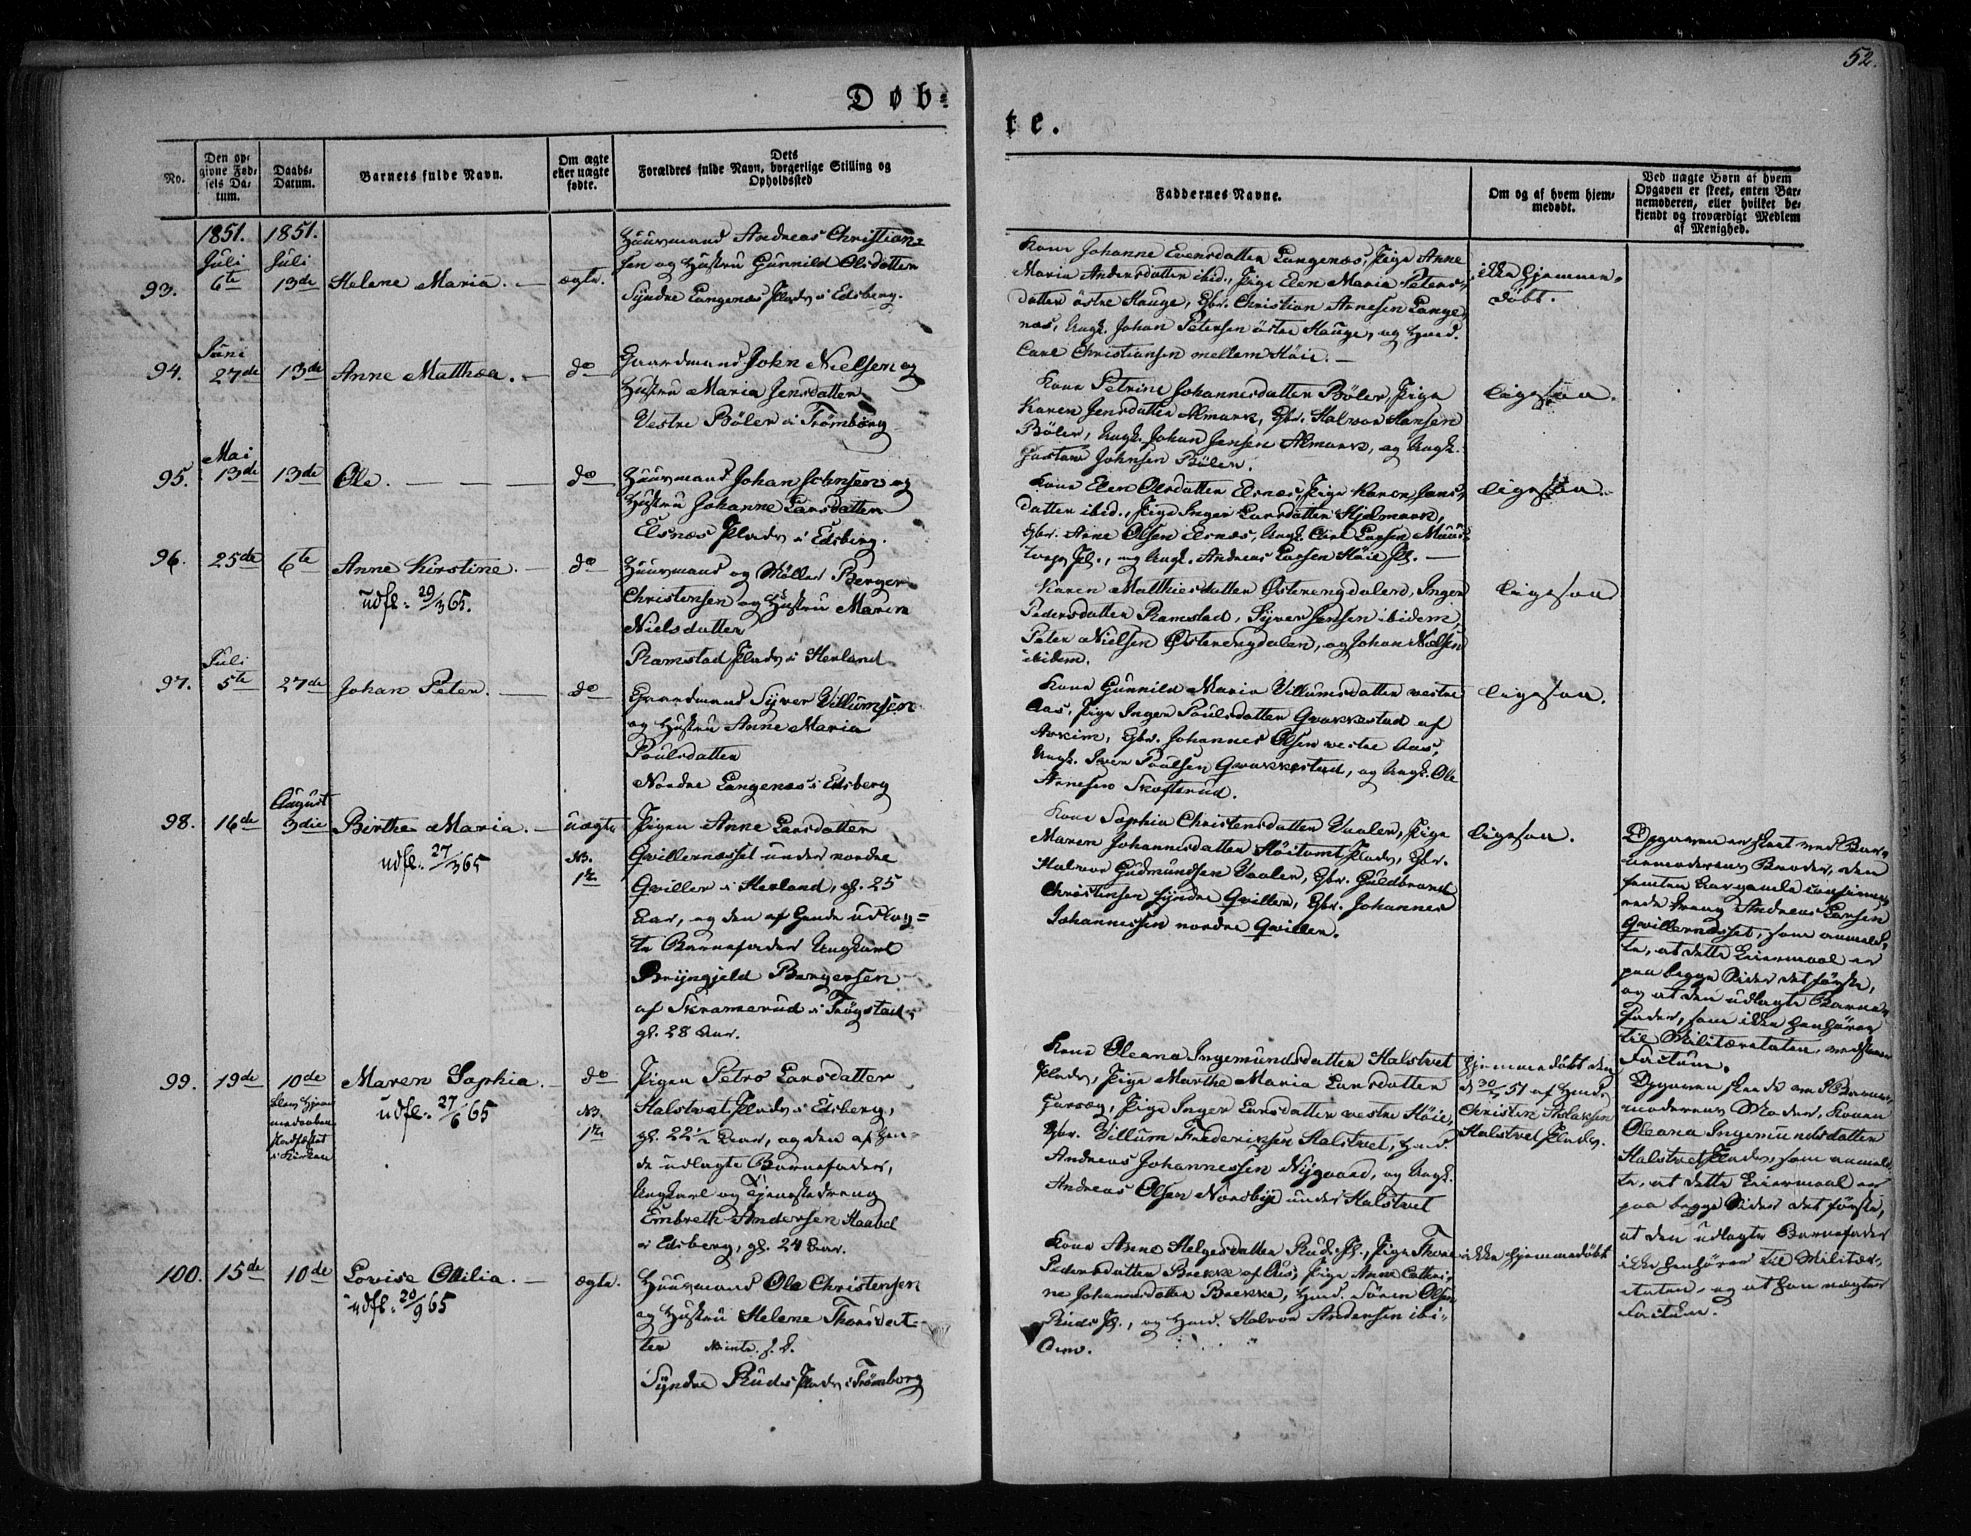 52.
Døb=
te.
No.
Den op-
givne Fød-
sels Da-
tum.
Daabs-
Datum.
Barnets fulde Navn.
Om ægte
eller uægte
fødte.
Dets
Forældres fulde Navn, borgerlige Stilling og
Opholdssted
Faddernes Navne.
Om og af hvem hjem-
medøbt.
Ved uægte Børn af hvem
Opgaven er skeet, enten Bar-
nemoderen, eller hvilket be-
kjendt og troværdigt Medlem
af Menighed.
1851. 1851.
Juli Juli
93. 6te 13de Helene Maria. ægte.
Huusmand Andreas Christian-
sen og Hustru Gunnild Olsdatter
Syndre Langenæs Plads i Edsberg.
Kone Johanne Evensdatter Langenæs, Pige Anne
Maria Andersdatter ibid., Pige Elen Maria Peters-
datter östre Hauge, Gbr. Christian Arnesen Lange-
næs, Ungk. Johan Petersen östre Hauge, og Hmd.
Carl Christiansen mellem Höie.
ikke hjemme-
döbt.
Juni
94. 27de 13de Anne Matthea. do
Gaardmand John Nielsen og
Hustru Maria Jensdatter
Vestre Böler i Trömborg
Kone Petrine Johannesdatter Böler, Pige
Karen Jensdatter Almark, Gbr. Halvor Hansen
Böler, Ungk. Johan Jensen Almark, og Ungk.
Gustav Johnsen Böler.
ligesaa.
Mai
95. 13de 13de Ole. do
Huusmand Johan Johnsen og
Hustru Johanne Larsdatter
Elsnæs Plads i Edsberg.
Kone Elen Olsdatter Elsnæs, Pige Karen Jans-
datter ibid., Pige Inger Larsdatter Hjelmark,
Gbr. Arne Olsen Elsnæs, Ungk. Carl Larsen
Pl., og Ungk. Andreas Larsen Höie Pl.
ligesaa.
96. 25de 6te Anne Kirstine. do
udfl. 29/3 65.
Huusmand og Möller Berger
Christensen og Hustru Maren
Nielsdatter
Ramstad Plads i Herland
Karen Matthiesdatter Österengdalen, Inger
Pedersdatter Ramstad, Syver Jensen ibidem,
Peter Nielsen Österengdalen, og Johan Nielsen
ibidem.
ligesaa
Juli
97. 5te 27de Johan Peter. do
Gaardmand Syver Villumsen
og Hustru Anne Maria
Poulsdatter
Nordre Langenæs i Edsberg
Kone Gunnild Maria Villumsdatter vestre
Aas, Pige Inger Poulsdatter Qvakkestad af
Askim, Gbr. Johannes Olsen vestre Aas,
Ungk. Iver Poulsen Qvakkestad, og Ungk. Ole
Arnesen Skofterud.
ligesaa.
August
98. 16de 3die Birthe Maria. uægte
udfl. 27/3 65
NB.
1te
Pigen Anne Larsdatter
Qvillernæsset under nordre
Qviller i Herland, gl. 25
Aar, og den af hende udlag-
te Barnefader Ungkarl
Bryngjeld Bergersen
af Skramerud i Trögstad,
gl. 28 Aar.
Kone Sophia Christensdatter Vaaler, Pige
Maren Johannesdatter Höitomt Plads, Gbr.
Halvor Gudmundsen Vaaler, Gbr. Guldbrand
Christensen syndre Qviller, Gbr. Johannes
Johannessen nordre Qviller.
ligesaa.
Opgaven er skeet ved Bar-
nemoderens Broder, den
femten Aar gamle confirme-
rede Dreng Andreas Larsen
Qvillernæsset, som anmeld-
te, at dette Leiermaal er
paa begge Sider det förste,
og at den udlagte Barne-
fader, som ikke henhörer
til Militæretaten, vedstaaer
Factum.
99. 19de 10de Maren Sophia. do
udfl. 27/6 65
NB.
1te
i Kirken
Pigen Petro Larsdatter
Halstvet Plads i Edsberg,
gl. 22 1/2 Aar, og den af hen-
de udlagte Barnefader,
Ungkarl og Tjenestedreng
Embreth Andersen Haabel
i Edsberg, gl. 24 Aar.
Kone Oleana Ingemundsdatter Halstvet
Plads, Pige Marthe Maria Larsdatter
Pige Inger Larsdatter vestre Höie,
Gbr. Villum Frederiksen Halstvet, Hmd.
Andreas Johannessen Nygaard, og Ungk.
Andreas Olsen Nordbye under Halstvet
hjemmedöbt den
d. 30/7 51 af Hmd.
Christen Aslaksen
Halstvet Plads.
Opgaven skeede ved Barne-
moderens Moder, Konen
Oleana Ingemundsdatter
Halstvet Plads, som anmeld-
te, at dette Leiermaal er
paa begge Sider det förste,
at den udlagte Barnefader
ikke henhörer til Militær-
etaten, og at han nægter
Factum.
100. 15de 10de Lovise Otilia. ægte.
udfl. 20/9 65
Huusmand Ole Christensen
og Hustru Helene Thorsdat-
ter
Syndre Ruds Plads i Trömborg
Kone Anne Helgesdatter Rud Pl., Pige Thone
Pedersdatter Brekke af Aas, Pige Anne Cathri-
ne Johannesdatter Brekke, Hmd. Sören Olsen
Ruds Pl., og Hmd. Halvor Andersen ibi-
dem.
ikke hjemmedöbt